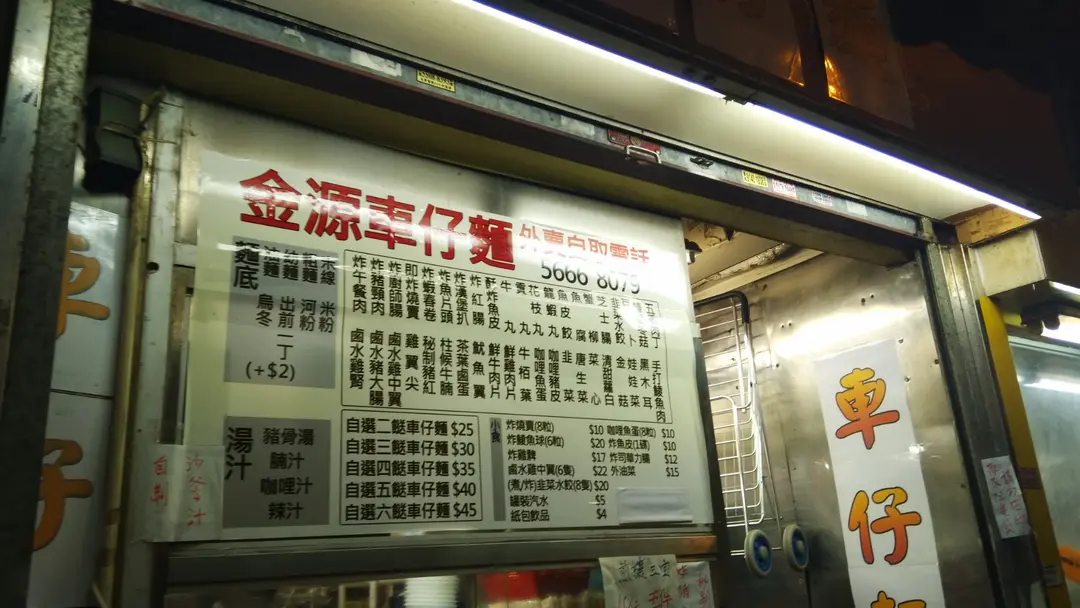 金源車仔麵
外賣自取電話
5666 8079
麵底
油麵
幼麵
粗麵
米線
烏冬
出前一丁
(+$2)
河粉
米粉
炸午餐肉
炸豬頸肉
炸廚師腸
即炸燒賣
炸蝦春卷
炸魚片頭
炸漢堡扒
炸紅腸
酥炸魚皮
牛丸
花枝丸
龍蝦丸
魚皮餃
蟹柳
芝士腸
鹵水雞腎
鹵水豬大腸
鹵水雞中翼
雞翼尖
秘製豬紅
柱候牛腩
茶葉蛋
魷魚
鮮牛肉片
鮮雞肉片
牛栢葉
咖哩魚蛋
咖哩豬皮
韭菜
唐生菜
菜心
清甜蘿白
金菇
娃娃菜
黑木耳
手打鯪魚肉
湯汁
豬骨湯
腩汁
咖哩汁
辣汁
自選二餸車仔麵 $25
自選三餸車仔麵 $30
自選四餸車仔麵 $35
自選五餸車仔麵 $40
自選六餸車仔麵 $45
小食
炸燒賣(8粒) $10
炸鯪魚球(6粒) $20
炸雞髀 $17
鹵水雞中翼(6隻) $22
(煮/炸)韭菜水餃(8隻) $20
罐裝汽水 $5
紙包飲品 $4
咖哩魚蛋(8粒) $10
炸魚皮(1磚) $10
炸司華力腸 $12
外油菜 $15
車仔
車仔